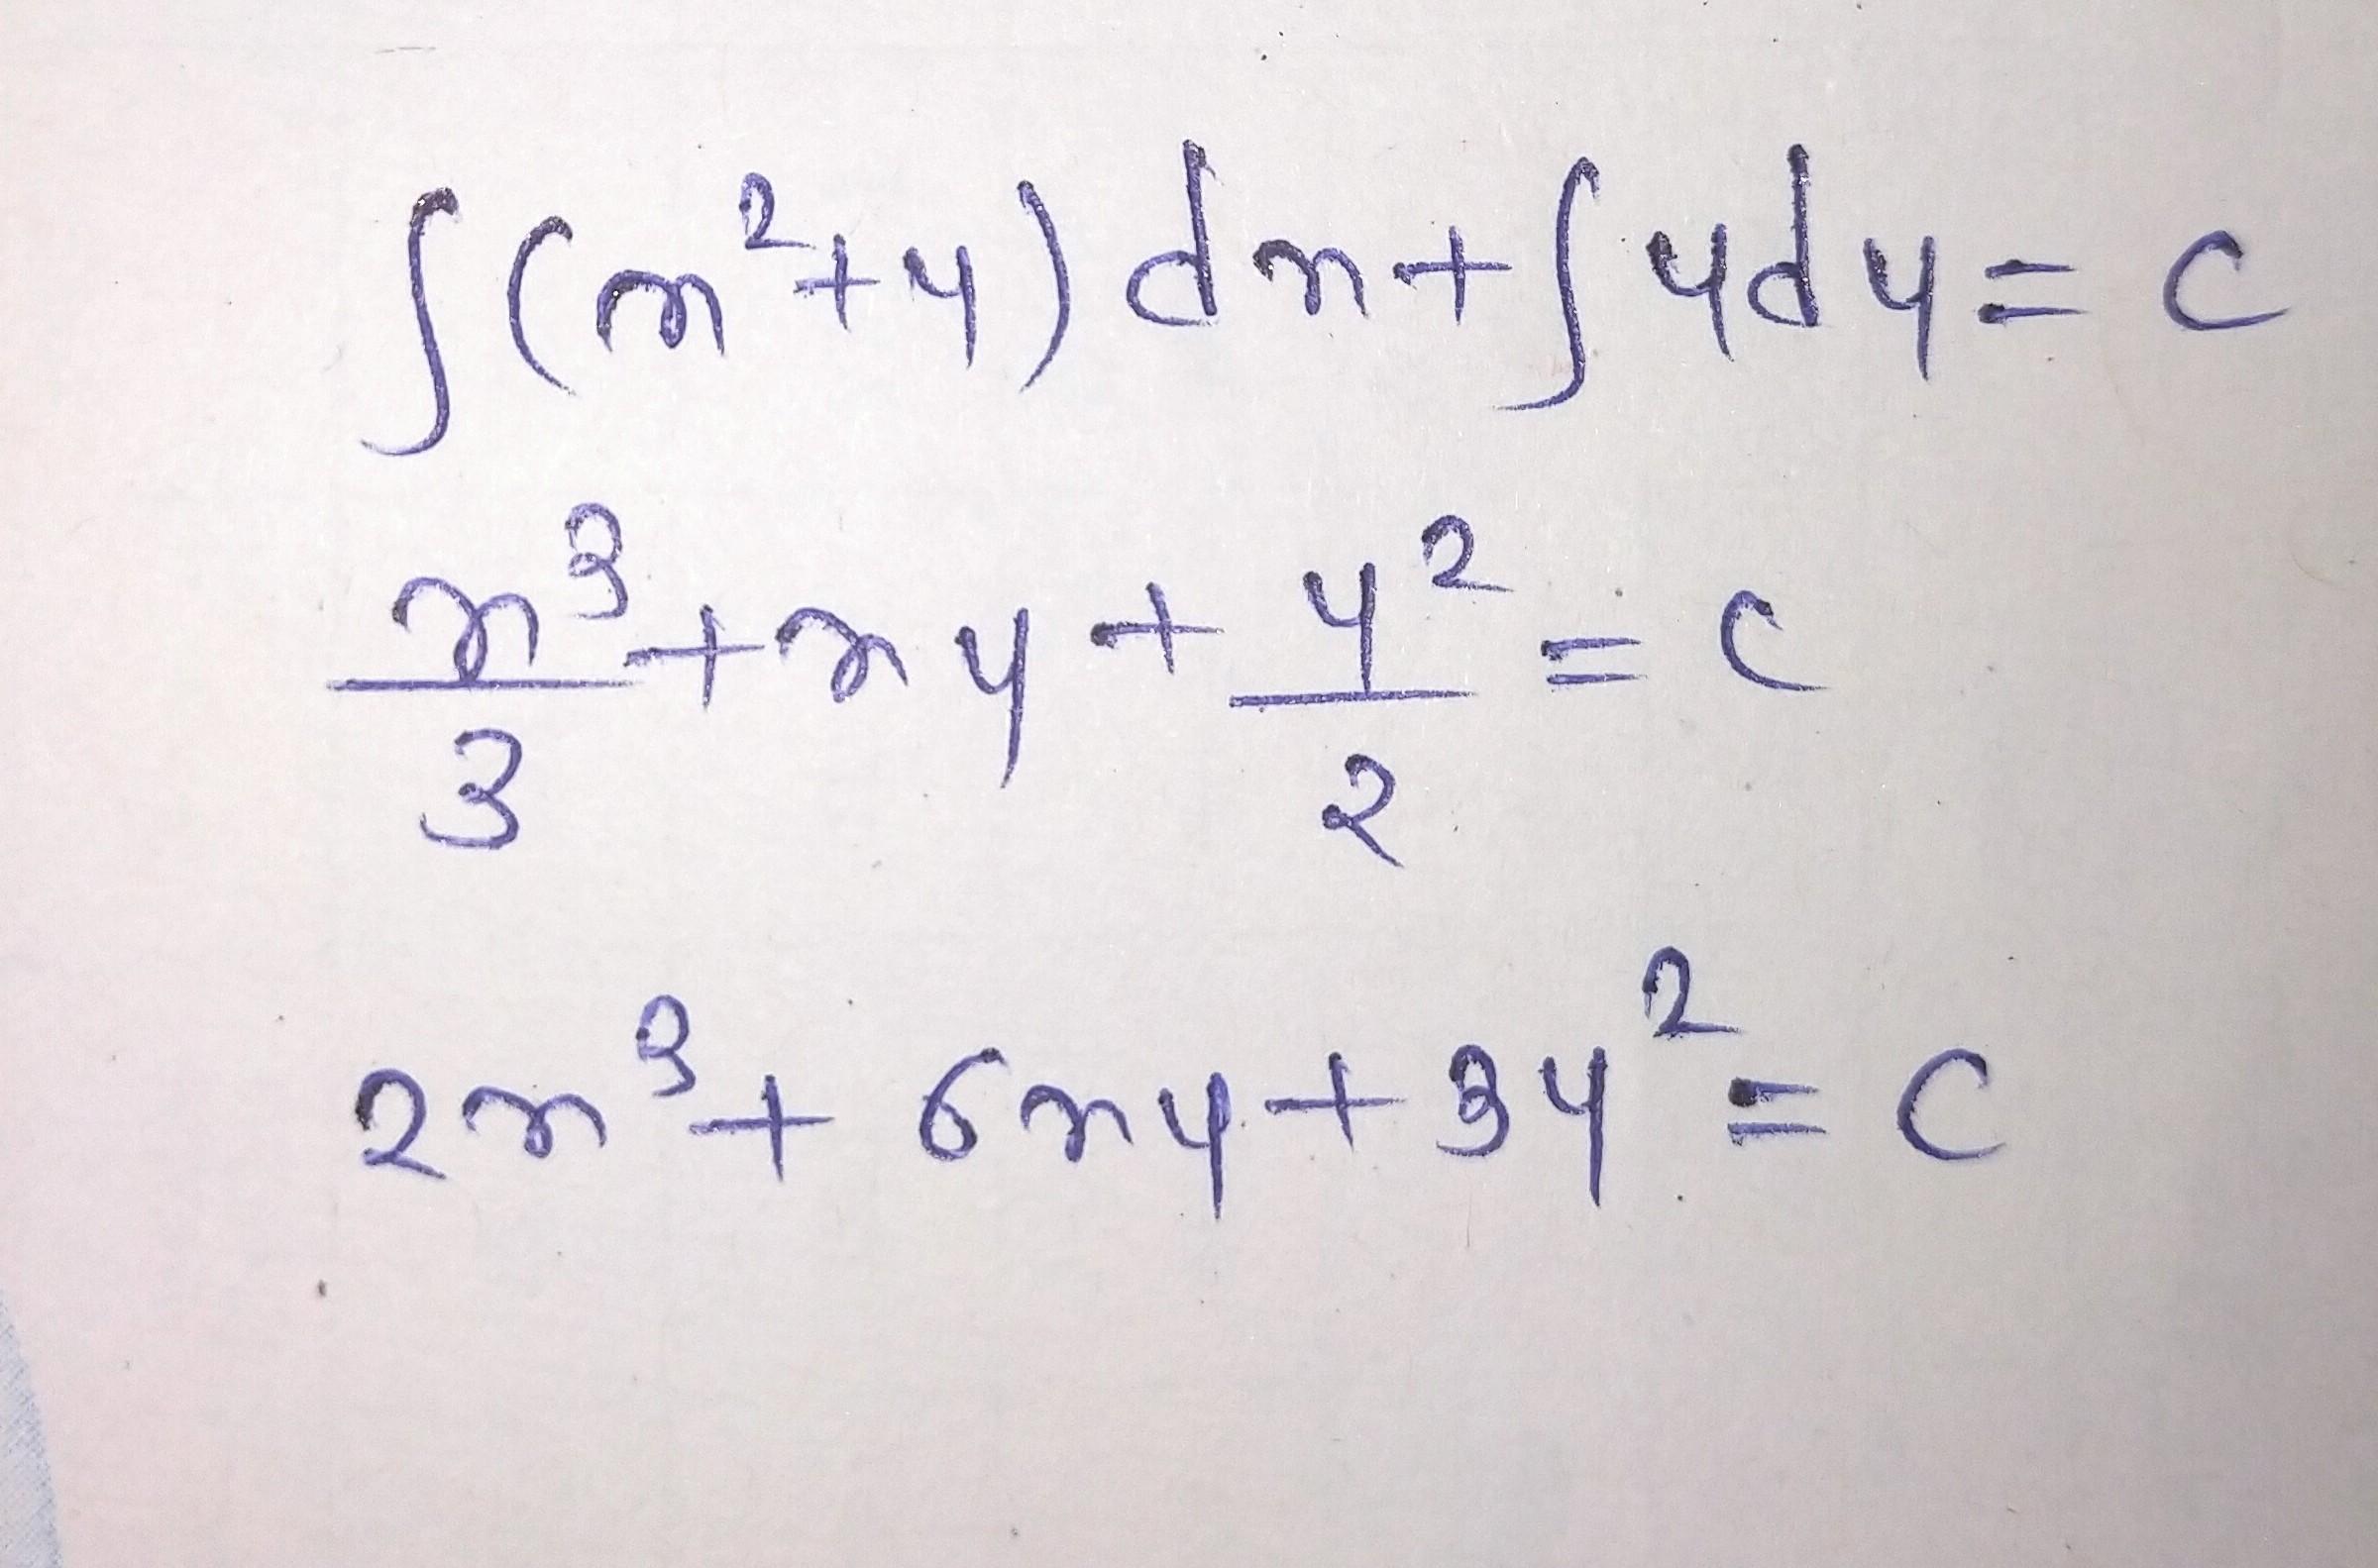 ∫(x²+y) dx + ∫ydy = c
x³/3 + xy + y²/2 = c
2x³ + 6xy + 3y² = c